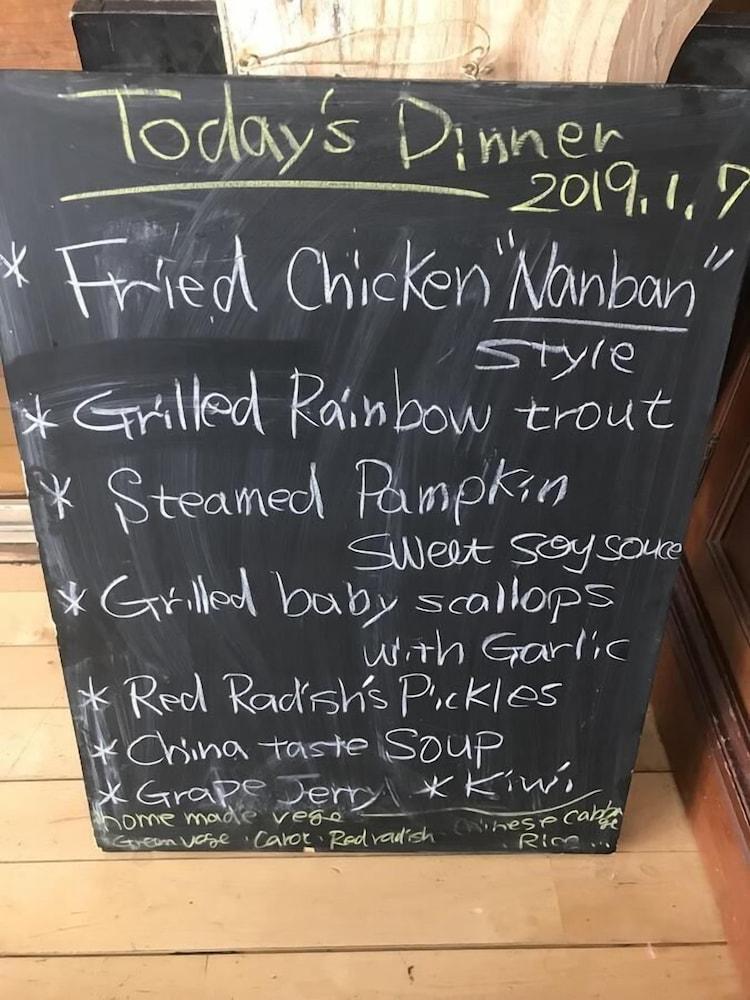 Today's Dinner
2019.1.7
* Fried Chicken "Nanban"
style
* Grilled Rainbow trout
* Steamed Pampkin
sweet soy souce
* Grilled baby scallops
with Garlic
* Red Radish's Pickles
* China taste Soup
* Grape Jerry * Kiwi
home made vege
Green vege . Carot . Red radish
Chinese
Rice ...